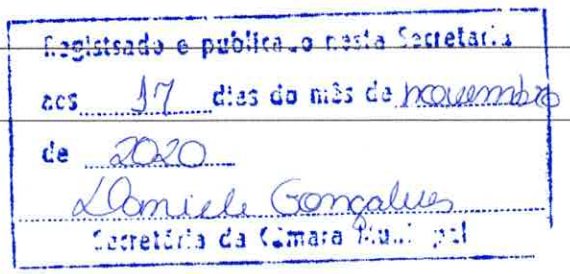 Registsado e publicado nesta Secretaria
aos 17 dias do mês de novembro
de 2020
Daniele Gonçalves
Secretária da Câmara Municipal